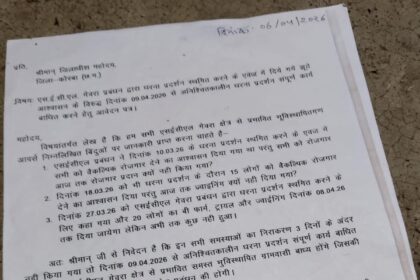 दिनांक: 06/04/2026
प्रति,
श्रीमान् जिलाधीश महोदय,
जिला–कोरबा (छ.ग.)
विषय: एस.ई.सी.एल. गेवरा प्रबंधन द्वारा धरना प्रदर्शन स्थगित करने के एवज में दिये गये झूठे
आश्वासन के विरुद्ध दिनांक 09.04.2026 से अनिश्चितकालीन धरना प्रदर्शन संपूर्ण कार्य
बाधित करने हेतु आवेदन पत्र।
महोदय,
विषयांतर्गत लेख है कि हम सभी एसईसीएल गेवरा क्षेत्र से प्रभावित भूविस्थापितगण
आपसे निम्नलिखित बिंदुओं पर जानकारी प्राप्त करना चाहते है–
1. एसईसीएल प्रबंधन ने दिनांक 10.03.26 के धरना प्रदर्शन स्थगित करने के एवज में
सभी को वैकल्पिक रोजगार देने का आश्वासन दिया गया था परंतु सभी को रोजगार
आज तक रोजगार प्रदान क्यों नही किया गया?
2. दिनांक 18.03.26 को भी धरना प्रदर्शन के दौरान 15 लोगों को वैकल्पिक रोजगार
देने का आश्वासन दिया परंतु आज तक ज्वाइनिंग क्यों नही दिया गया?
3. दिनांक 27.03.26 को एसईसीएल गेवरा प्रबंधन द्वारा धरना प्रदर्शन स्थगित करने के
लिए कहा गया और 20 लोगों का बी फार्म, ट्रायल और ज्वाइनिंग दिनांक 08.04.26
तक दिया जायेगा लेकिन अभी तक कुछ नही हुआ।
अतः श्रीमान् जी से निवेदन है कि इन सभी समस्याओं का निराकरण 3 दिनों के अंदर
नही किया गया तो दिनांक 09.04.2026 से अनिश्चितकालीन धरना प्रदर्शन संपूर्ण कार्य बाधित
क्षेत्र से प्रभावित समस्त भूविस्थापित ग्रामवासी बाध्य होंगे जिसकी
प्रबंधन की होगी।